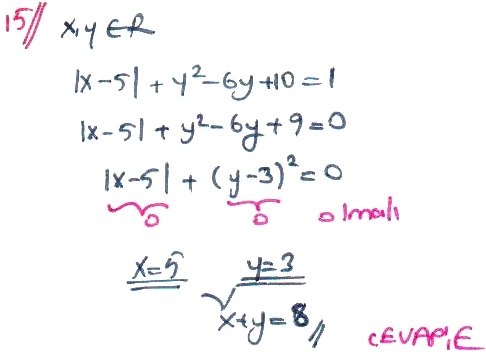 15// x,y ∈ R
|x-5| + y²-6y+10=1
|x-5| + y²-6y+9=0
|x-5| + (y-3)²=0
0 0 olmalı
x=5 y=3
x+y=8//
CEVAP, E